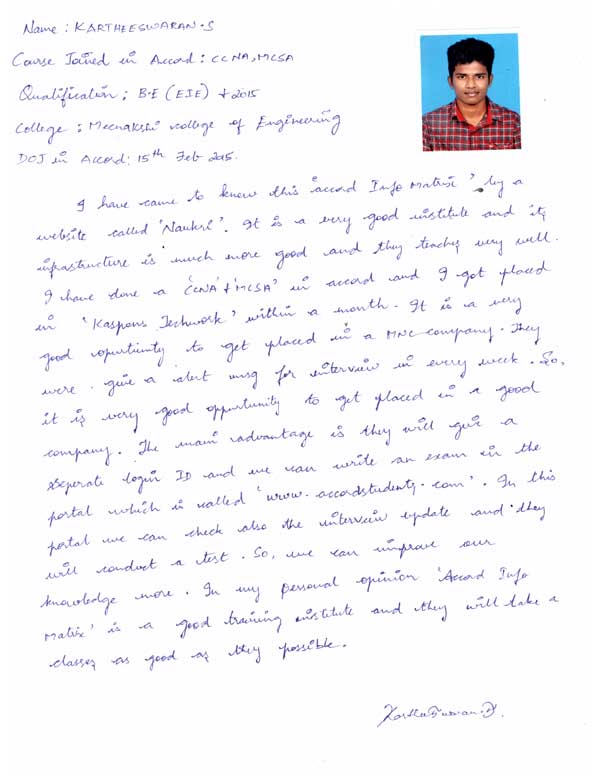 Name : KARTHEESWARAN.S
Course Joined in Accord : CCNA, MCSA
Qualification : B.E (EIE) + 2015
College : Meenakshi college of Engineering
DOJ in Accord : 15th Feb 2015.
I have came to know this 'accord Info Matrix' by a
website called 'Naukri'. It is a very good institute and its
infrastructure is much more good and they teaches very well.
I have done a 'CCNA' + 'MCSA' in accord and I got placed
in 'Kaspons Techwork' within a month. It is a very
good opurtunity to get placed in a MNC company. They
were give a alert msg for interview in every week. So,
it is very good opportunity to get placed in a good
company. The main advantage is they will give a
seperate login ID and we can write an exam in the
portal which is called 'www.accordstudents.com'. In this
portal we can check also the interview update and they
will conduct a test. So, we can improve our
knowledge more. In my personal opinion 'Accord Info
Matrix' is a good training institute and they will take a
classes as good as they possible.